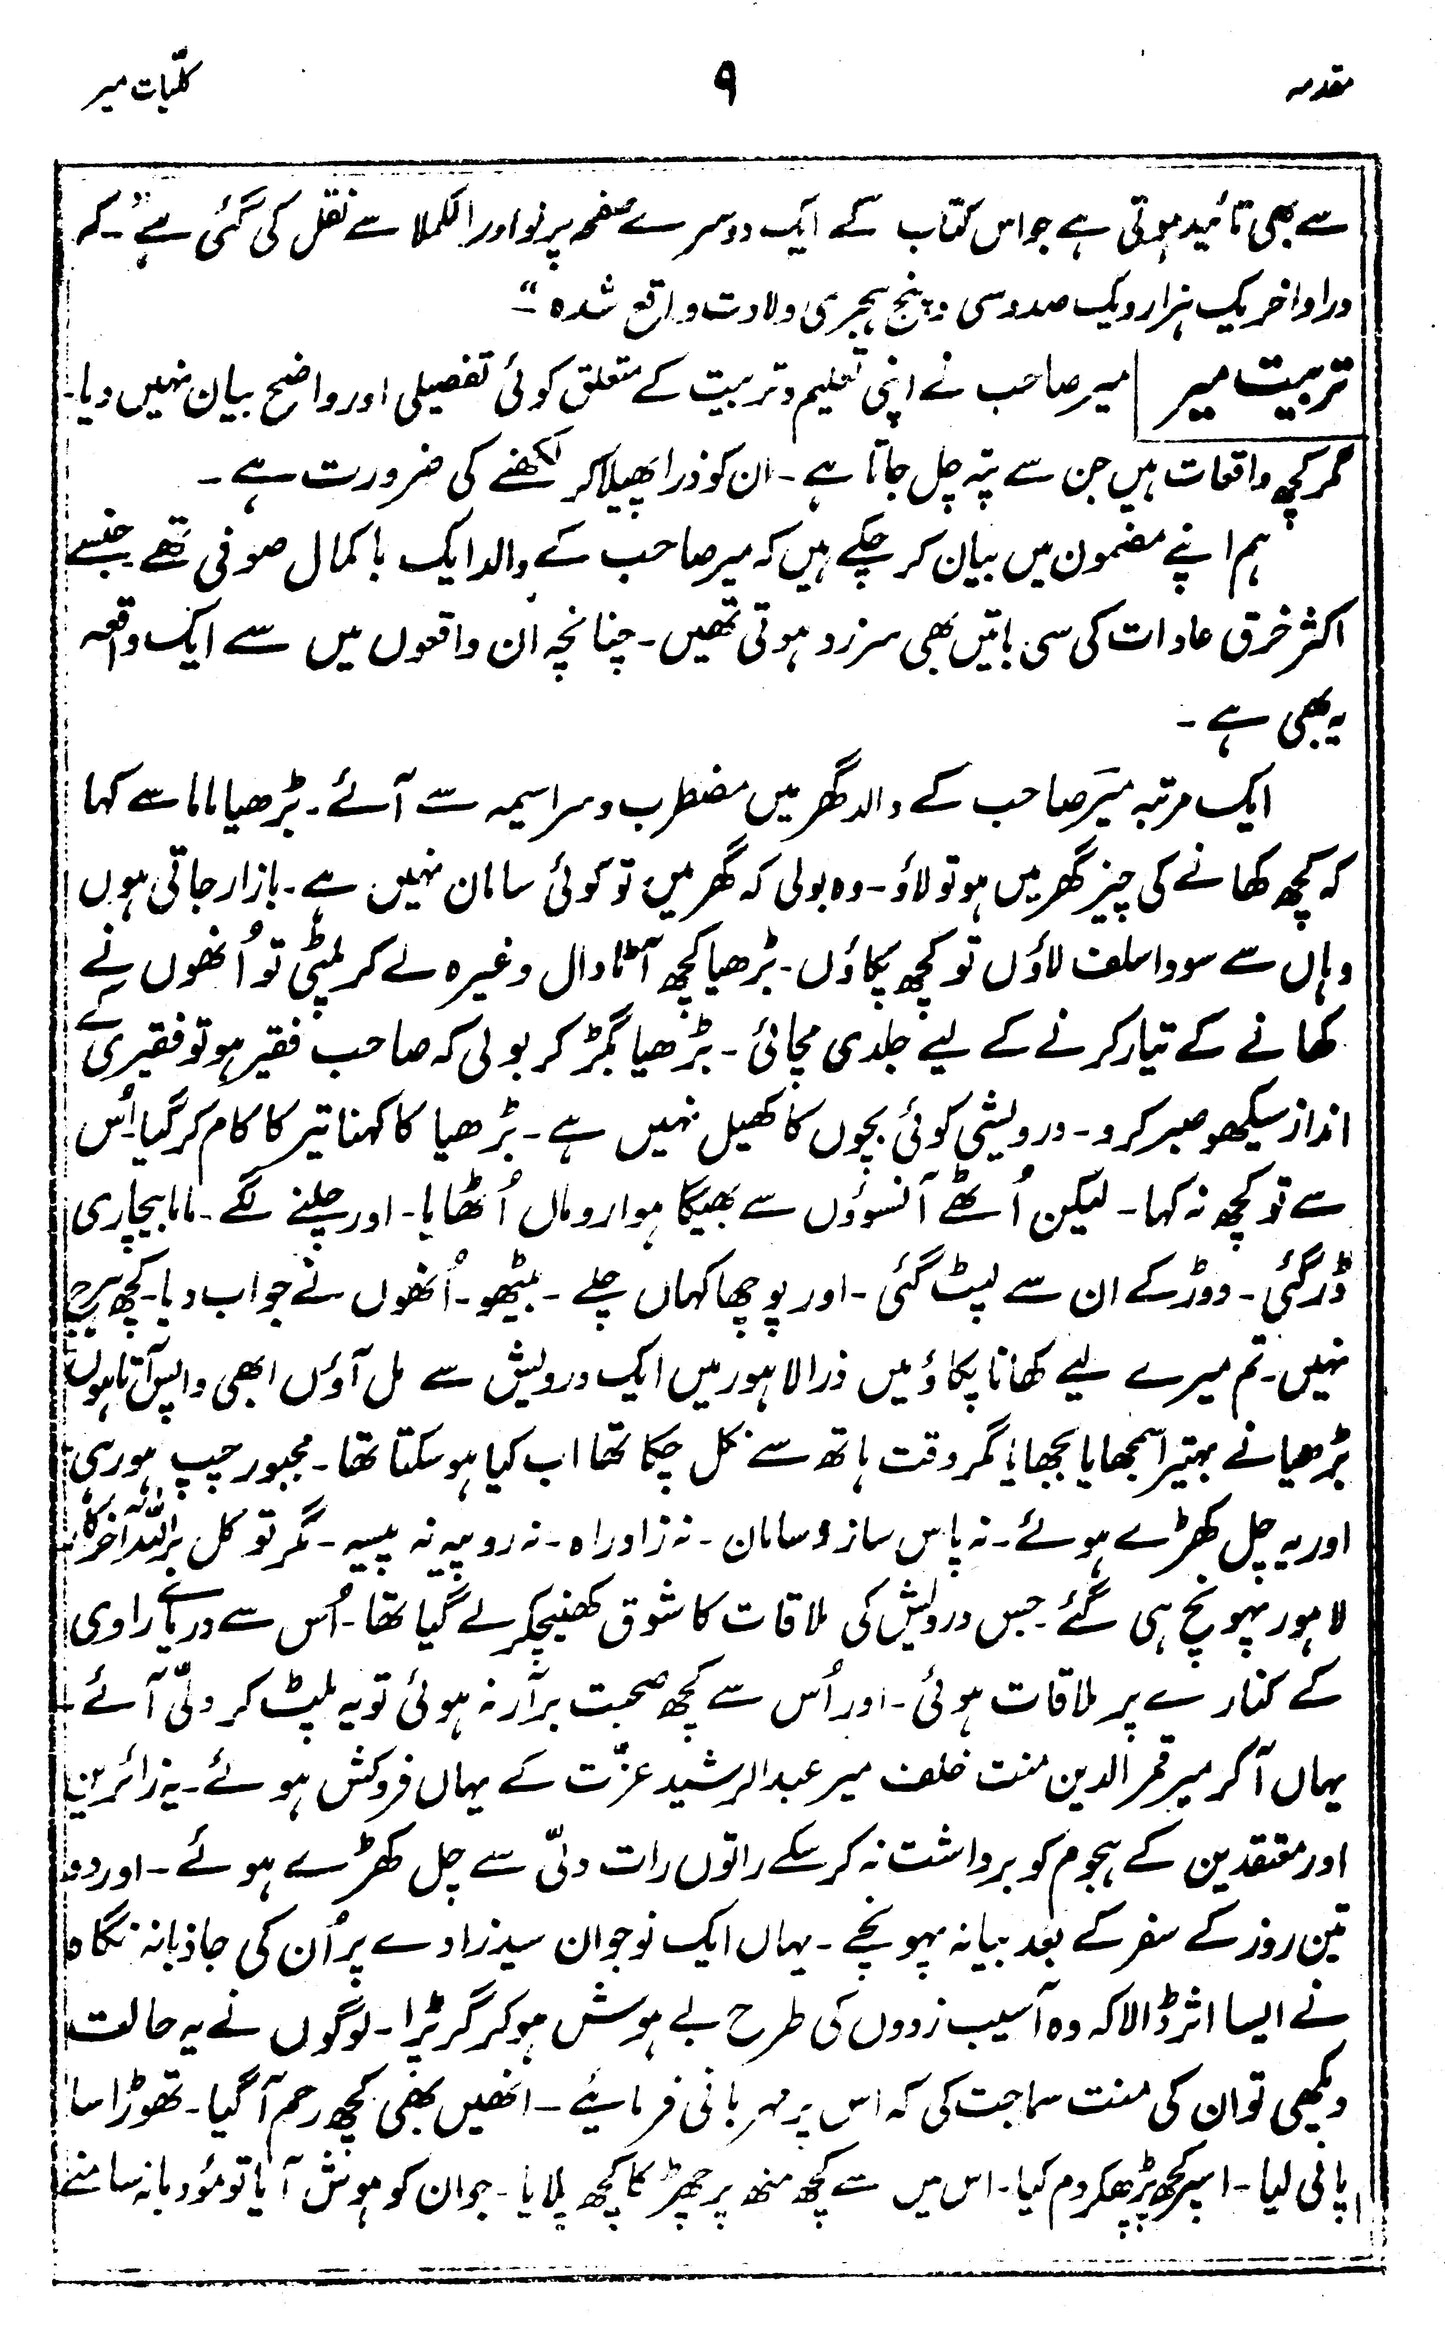 مقدمہ ۹ کلّیات میر
سے بھی تائید ہوتی ہے جو اس کتاب کے ایک دوسرے صفحہ پر نوادر الکملا سے نقل کی گئی ہے ”۔ کہ
در اواخر یک ہزار و یک صد و سی و پنج ہجری ولادت واقع شدہ “۔
تربیت میر میر صاحب نے اپنی تعلیم و تربیت کے متعلق کوئی تفصیلی اور واضح بیان نہیں دیا۔
مگر کچھ واقعات ہیں جن سے پتہ چل جاتا ہے ۔ ان کو ذرا پھیلا کر لکھنے کی ضرورت ہے ۔
ہم اپنے مضمون میں بیان کر چکے ہیں کہ میر صاحب کے والد ایک با کمال صوفی تھے جنسے
اکثر خرق عادات کی سی باتیں بھی سرزد ہوتی تھیں ۔ چنانچہ ان واقعوں میں سے ایک واقعہ
یہ بھی ہے ۔
ایک مرتبہ میرؔ صاحب کے والد گھر میں مضطرب و سراسیمہ سے آئے ۔ بڑھیا ماما سے کہا
کہ کچھ کھانے کی چیز گھر میں ہو تو لاؤ ۔ وہ بولی کہ گھر میں تو کوئی سامان نہیں ہے ۔ بازار جاتی ہوں
وہاں سے سودا سلف لاؤں تو کچھ پکاؤں ۔ بڑھیا کچھ آٹا دال وغیرہ لے کر پلٹی تو اُنھوں نے
کھانے کے تیار کرنے کے لیے جلدی مچائی ۔ بڑھیا بگڑ کر بولی کہ صاحب فقیر ہو تو فقیری کے
انداز سیکھو صبر کرو ۔ درویشی کوئی بچوں کا کھیل نہیں ہے ۔ بڑھیا کا کہنا تیر کا کام کر گیا۔ اُس
سے تو کچھ نہ کہا ۔ لیکن اُٹھے آنسوؤں سے بھیگا ہوا رومال اُٹھایا ۔ اور چلنے لگے ۔ ماما بیچاری
ڈر گئی ۔ دوڑ کے ان سے لپٹ گئی ۔ اور پوچھا کہاں چلے ۔ بیٹھو ۔ اُنھوں نے جواب دیا ۔ کچھ ہرج
نہیں ۔ تم میرے لیے کھانا پکاؤ میں ذرا لاہور میں ایک درویش سے مل آوٴں ابھی واپس آتا ہوں
بڑھیا نے بہتیرا سمجھایا بجھایا مگر وقت ہاتھ سے نکل چکا تھا اب کیا ہو سکتا تھا ۔ مجبور چپ ہو رہی
اور یہ چل کھڑے ہوئے ۔ نہ پاس ساز و سامان ۔ نہ زاد راہ ۔ نہ روپیہ نہ پیسہ ۔ مگر توکل براللہ آخر کار
لاہور پہونچ ہی گئے ۔ جس درویش کی ملاقات کا شوق کھینچکر لے گیا تھا ۔ اُس سے دریائے راوی
کے کنارے پر ملاقات ہوئی ۔ اور اُس سے کچھ صحبت برآر نہ ہوئی تو یہ پلٹ کر دلّی آئے ۔
یہاں آکر میر قمر الدین منت خلف میر عبد الرشید عزّت کے یہاں فروکش ہوئے ۔ یہ زائرین
اور معتقدین کے ہجوم کو برداشت نہ کر سکے راتوں رات دلّی سے چل کھڑے ہوئے ۔ اور دو
تین روز کے سفر کے بعد بیانہ پہونچے ۔ یہاں ایک نوجوان سید زادے پر اُن کی جاذبانہ نگاہ
نے ایسا اثر ڈالا کہ وہ آسیب زدوں کی طرح بے ہوش ہو کر گر پڑا ۔ لوگوں نے یہ حالت
دیکھی تو ان کی منت سماجت کی کہ اس پر مہربانی فرمائیے ۔ انھیں بھی کچھ رحم آگیا ۔ تھوڑا سا
پانی لیا ۔ اسپر کچھ پڑھکر دم کیا ۔ اس میں سے کچھ منھ پر چھڑکا کچھ پلایا ۔ جوان کو ہوش آیا تو مؤدبانہ سامنے